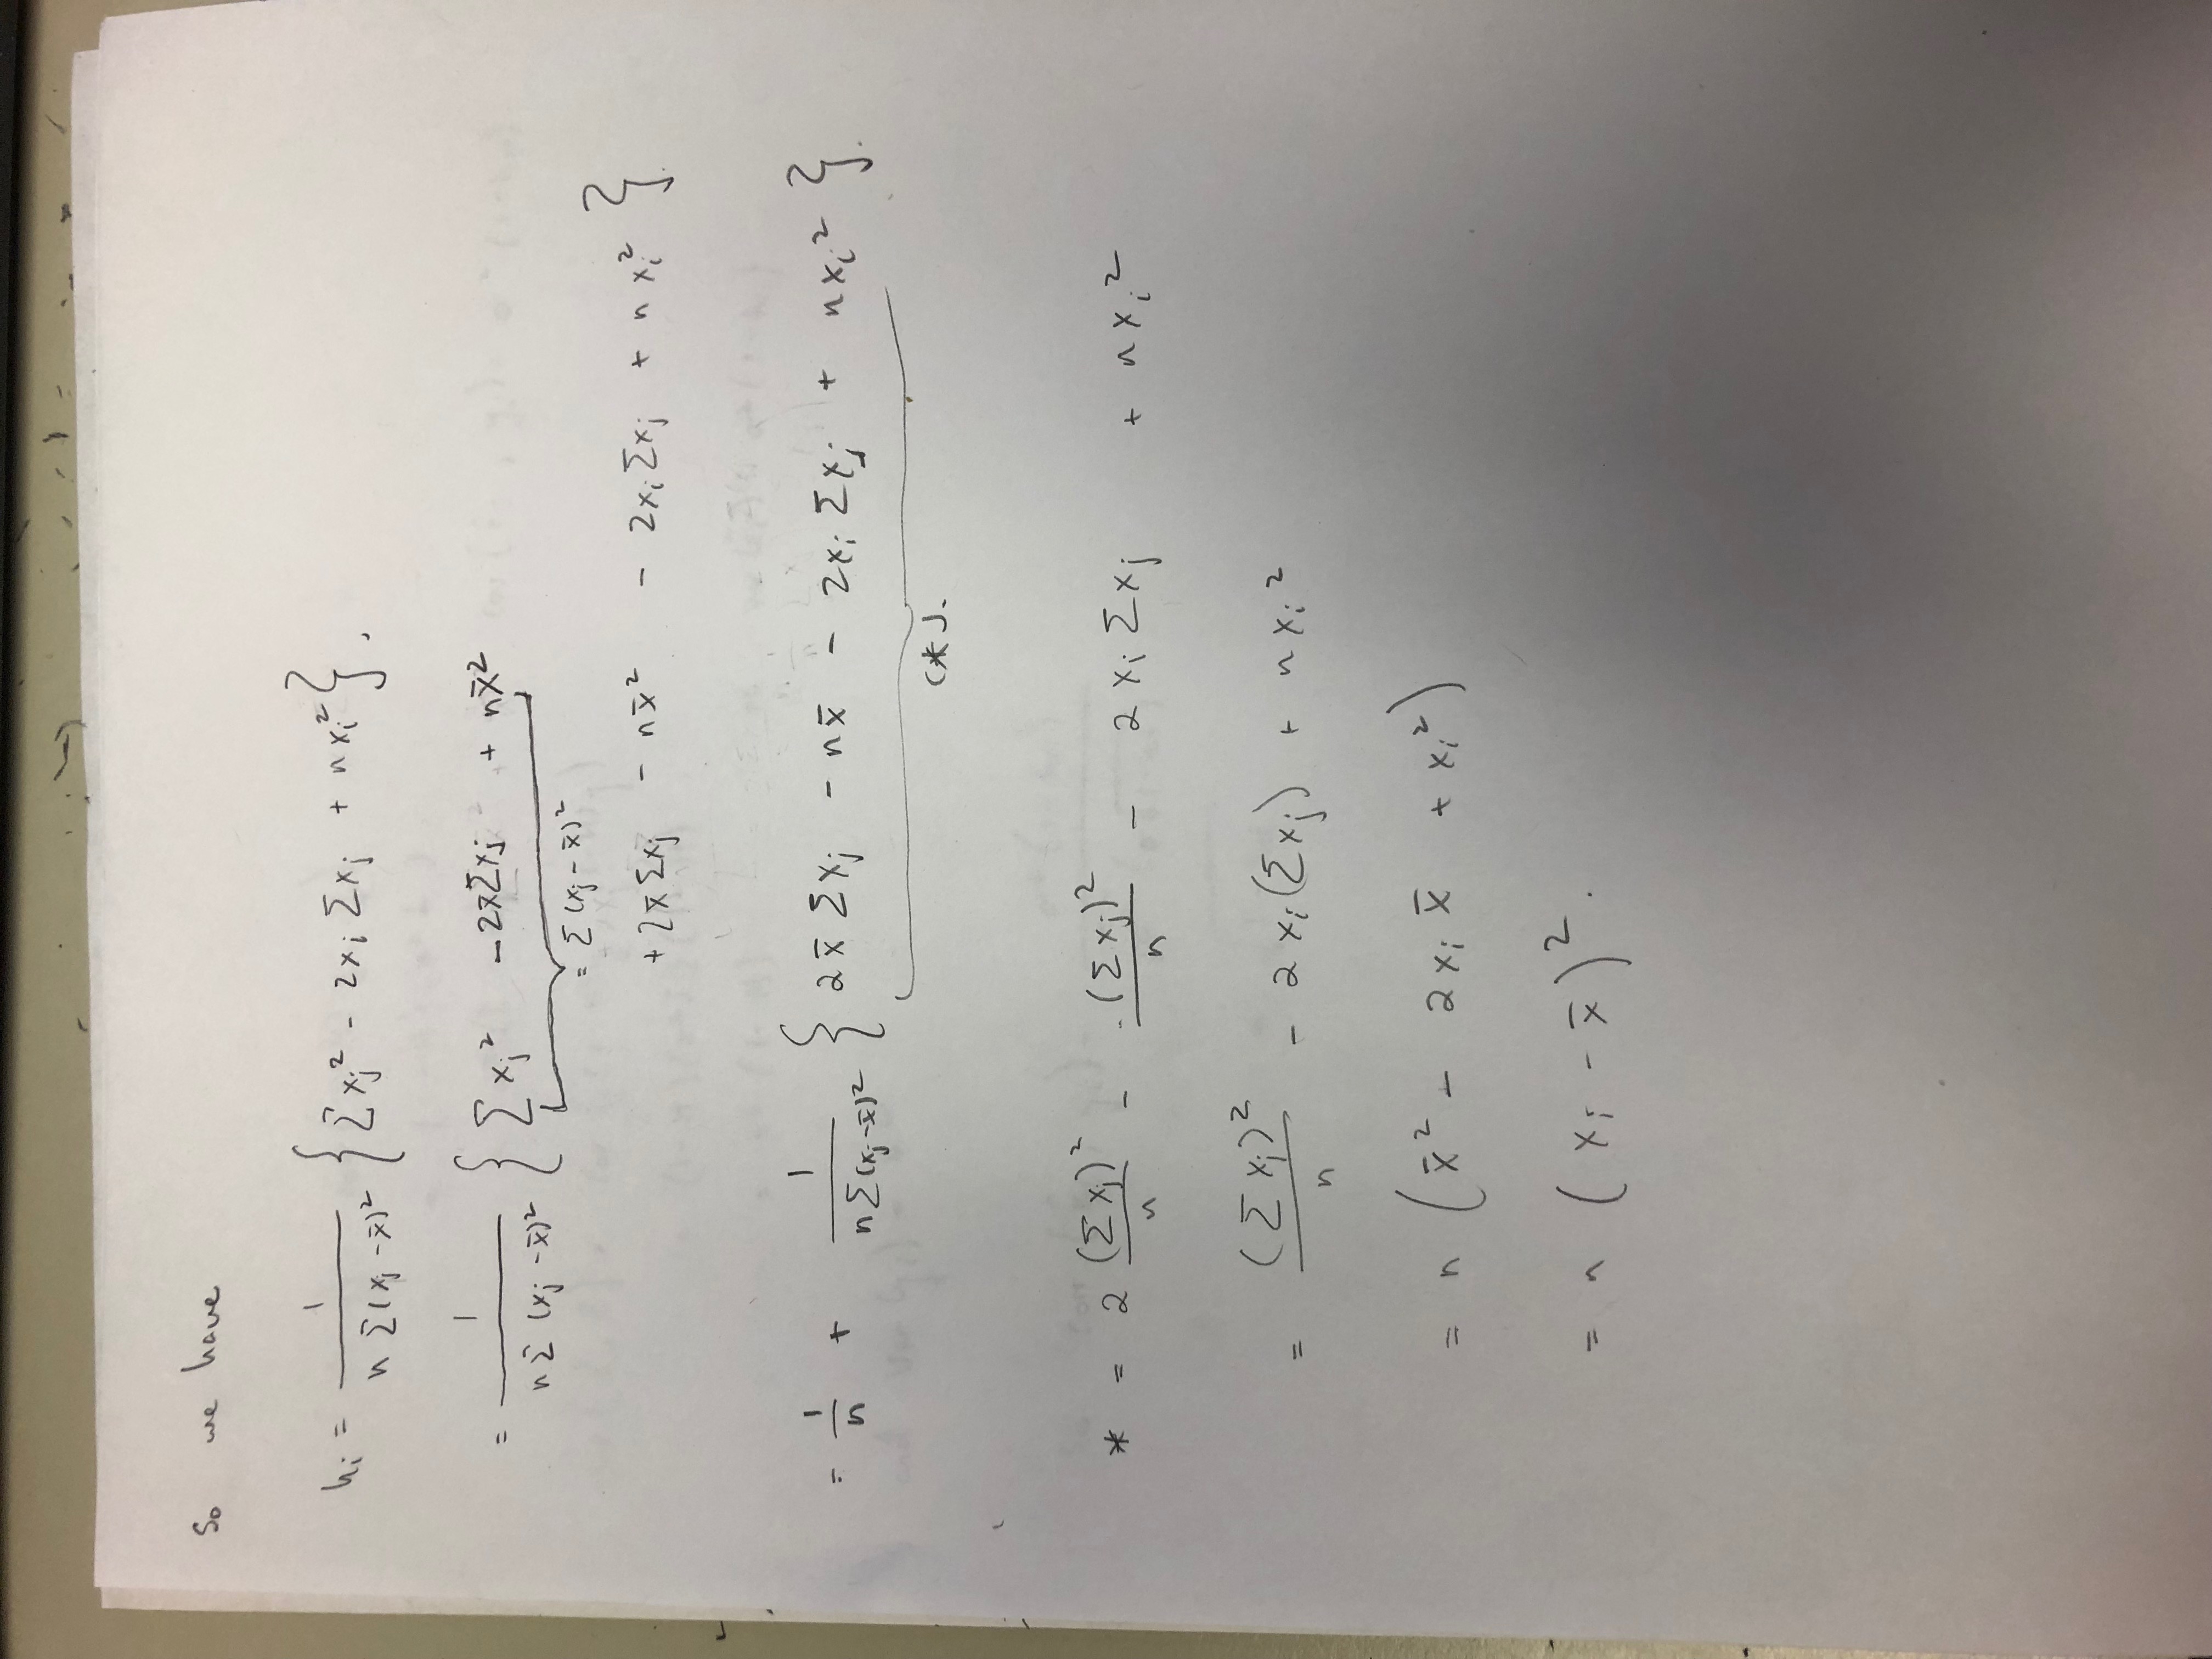 So we have
hᵢ = 1 / (n Σ(xⱼ - x̄)²) { Σxⱼ² - 2xᵢ Σxⱼ + nxᵢ² },
= 1 / (nΣ (xⱼ - x̄)²) { Σ xⱼ² - 2x̄Σxⱼ + nx̄²
= Σ (xⱼ - x̄)²
+ 2x̄ Σxⱼ - nx̄² - 2xᵢ Σxⱼ + n xᵢ² }.
= 1/n + 1 / (nΣ(xⱼ-x̄)²) { 2x̄ Σxⱼ - nx̄ - 2xᵢ Σxⱼ + nxᵢ² }.
(*).
* = 2 (Σxⱼ)²/n - (Σxⱼ)²/n - 2xᵢ Σxⱼ + nxᵢ²
= (Σxⱼ)²/n - 2xᵢ(Σxⱼ) + nxᵢ²
= n ( x̄² - 2xᵢ x̄ + xᵢ² )
= n ( xᵢ - x̄ )².